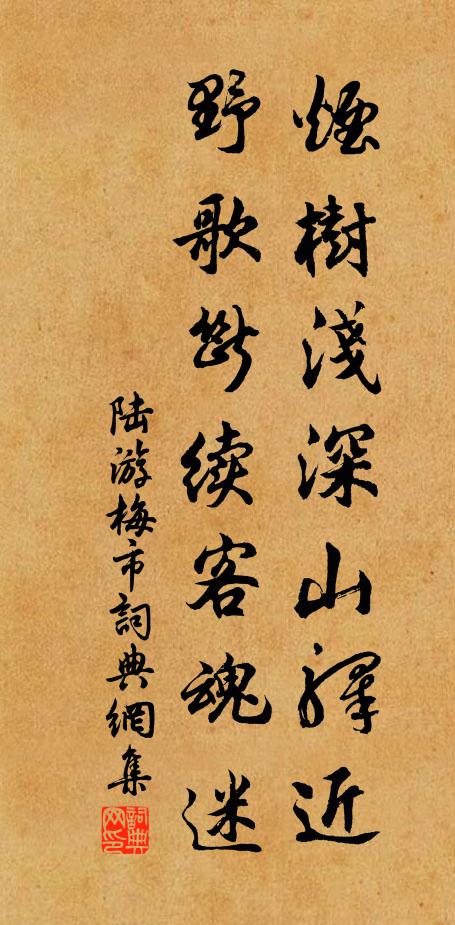 煙樹淺深山驛近
野歌斷续客魂迷
陆游梅市詞典網集
詞典网印